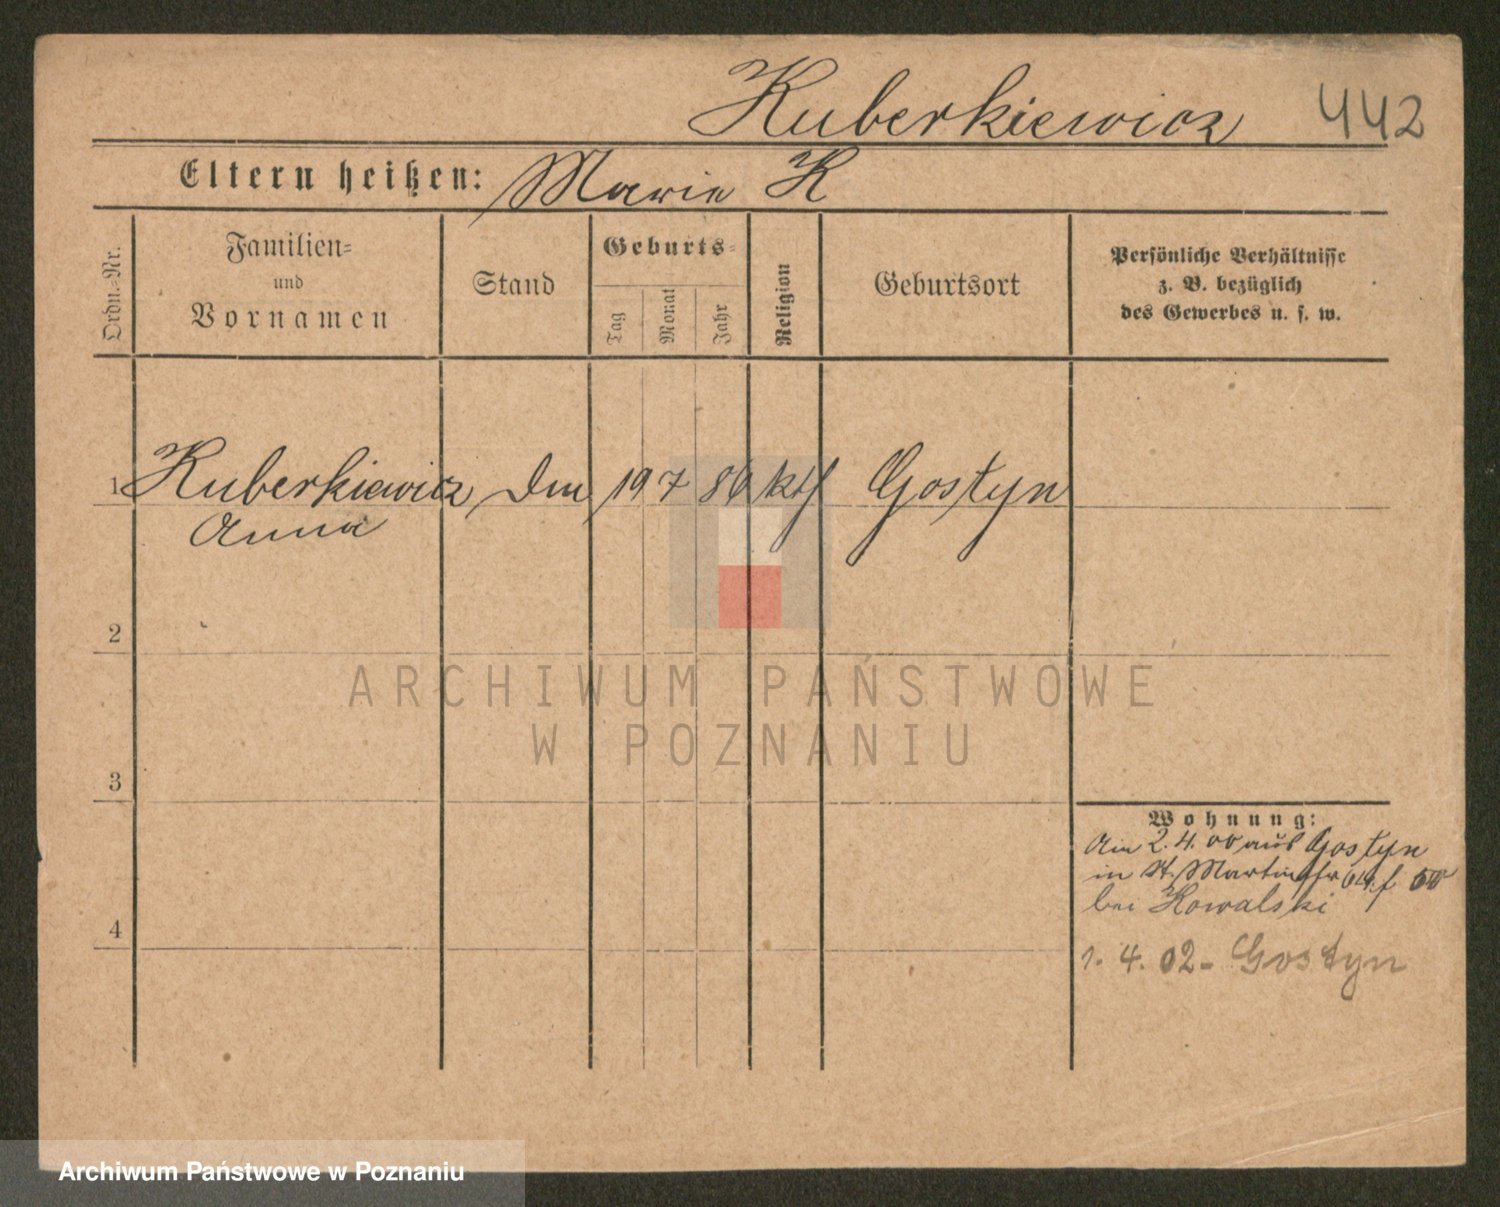 Kuberkiewicz 442
Eltern heißen: Marie K
Ordn.-Nr.
Familien-
und
Vornamen
Stand
Geburts-
Tag
Monat
Jahr
Religion
Geburtsort
Persönliche Verhältnisse
z. B. bezüglich
des Gewerbes u. s. w.
1 Kuberkiewicz Dm 19 7 86 kth Gostyn
Anna
2
3
4
ARCHIWUM PAŃSTWOWE
W POZNANIU
Wohnung:
Am 2. 4. 00 aus Gostyn
in St. Martinstr
bei Kowalski
1. 4. 02 - Gostyn
Archiwum Państwowe w Poznaniu